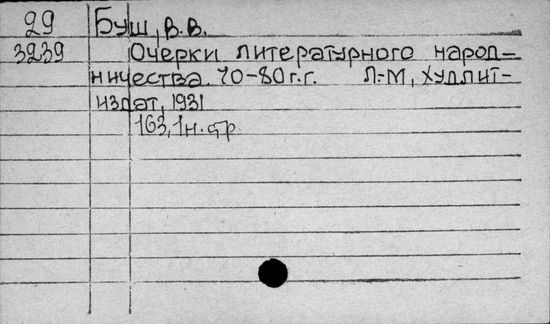 29 Буш, В.В.
3239 Очерки литературного народ-
ничества 70-80 г.г. Л.-М, Худлит-
издат, 1931
163, 1 н. стр